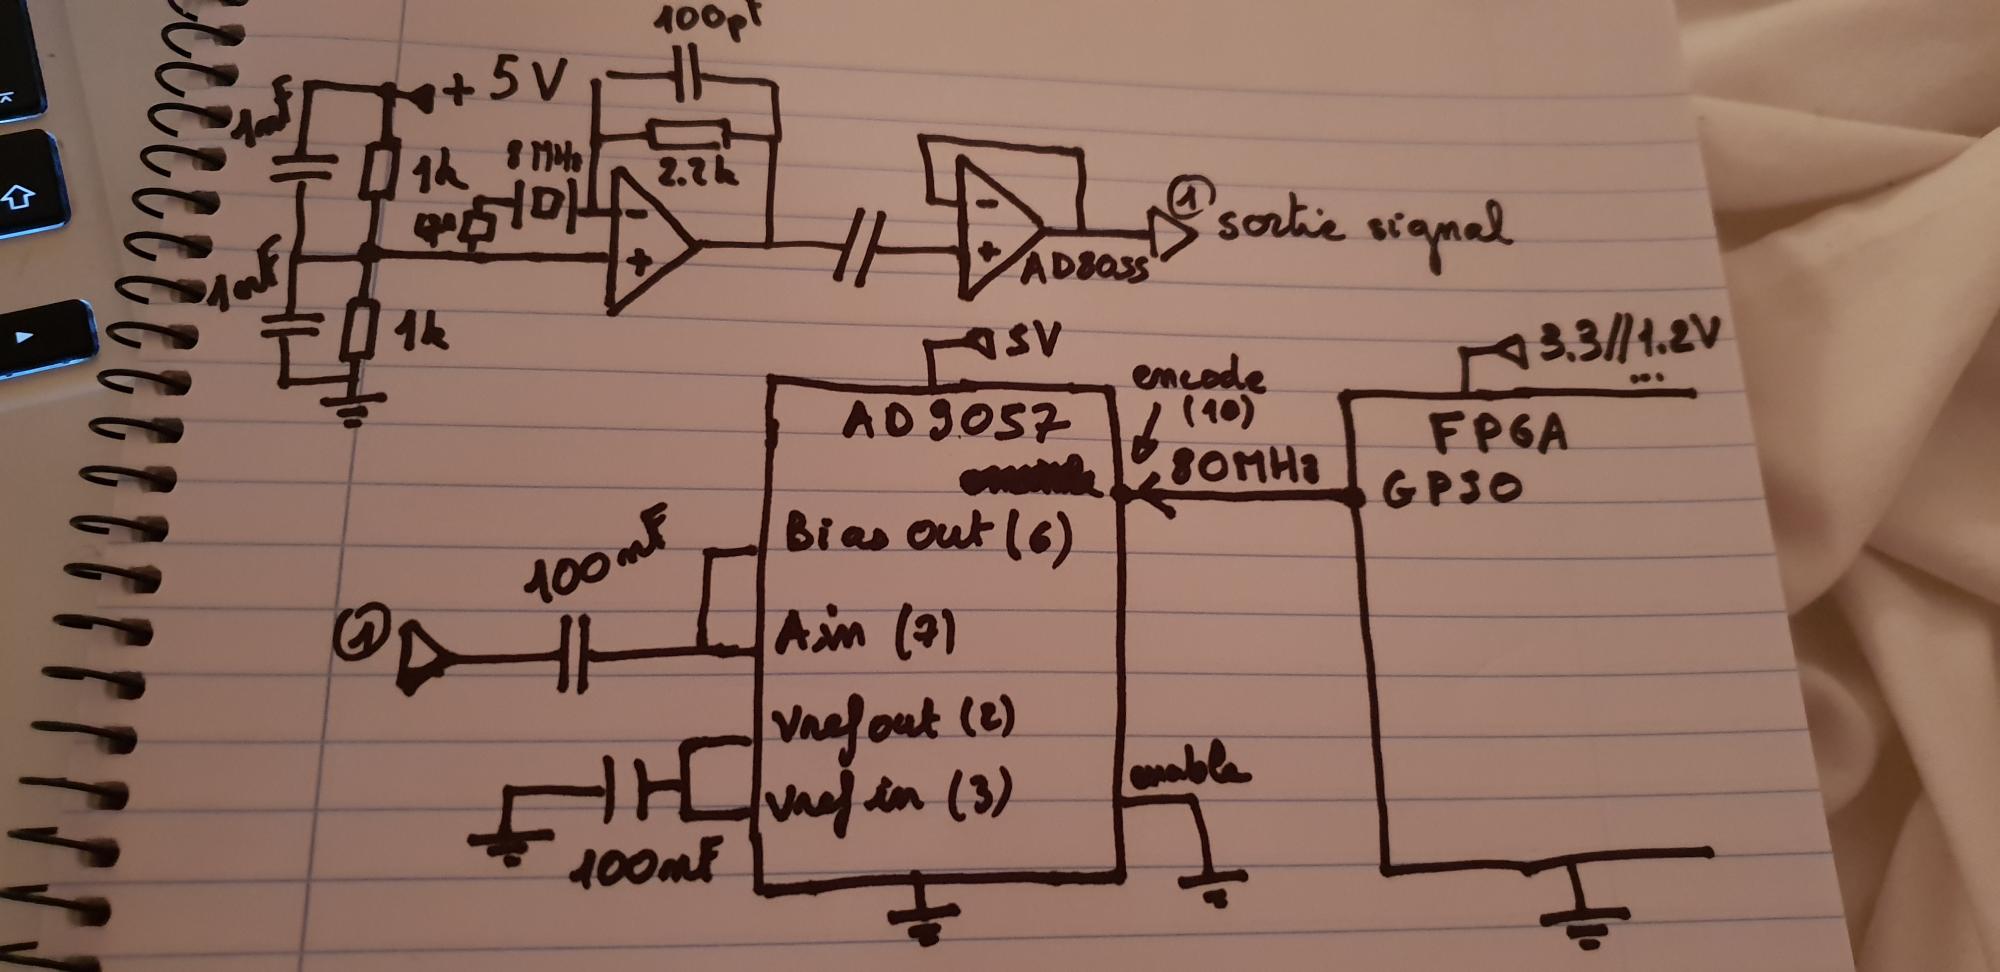 100pf
+ 5V
1nF
8MHz
1k
2.2k
1
sortie signal
AD8055
1nF
1k
5V
3.3//1.2V
...
encode
(10)
AD9057
FPGA
80MHz
GPIO
Bias out (6)
100nF
1
Ain (7)
Vref out (2)
enable
Vref in (3)
100nF